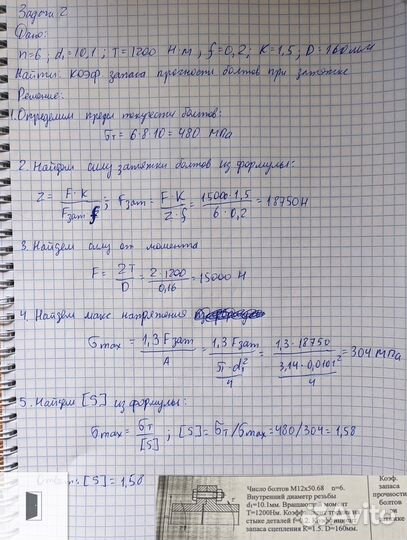 Задача 2
Дано:
n=6, d₁=10,1; T=1200 Н м, f=0,2; K=1,5, D=160мм
Найти: Коэф запаса прочности болтов при затяжке
Решение:
1. Определим предел текучести болтов:
σт = 6·8·10 = 480 МПа
2. Найдем силу затяжки болтов из формулы:
Z = F·K / Fзат f ; Fзат = F·K / Z·f = 15000·1,5 / 6·0,2 = 18750Н
3. Найдем силу от момента
F = 2T / D = 2·1200 / 0,16 = 15000 Н
4. Найдем макс напряжения
σmax = 1,3 Fзат / A = 1,3 Fзат / π·d₁² / 4 = 1,3·18750 / 3,14·0,0101² / 4 = 304 МПа
5. Найдем [S] из формулы:
σmax = σт / [S] ; [S] = σт / σmax = 480/304 = 1,58
[S] = 1,58
Число болтов М12х50.68 n=6.
Внутренний диаметр резьбы
d₁=10.1мм. Вращающий момент
T=1200Нм. Коэффициент
стыке деталей
запаса сцепления K=1.5. D=160мм.
Коэф.
запаса
прочности
болтов
Avito